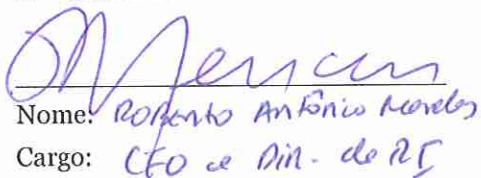 Nome: Roberto Antônio Mendes
Cargo: CFO e Dir. de RI